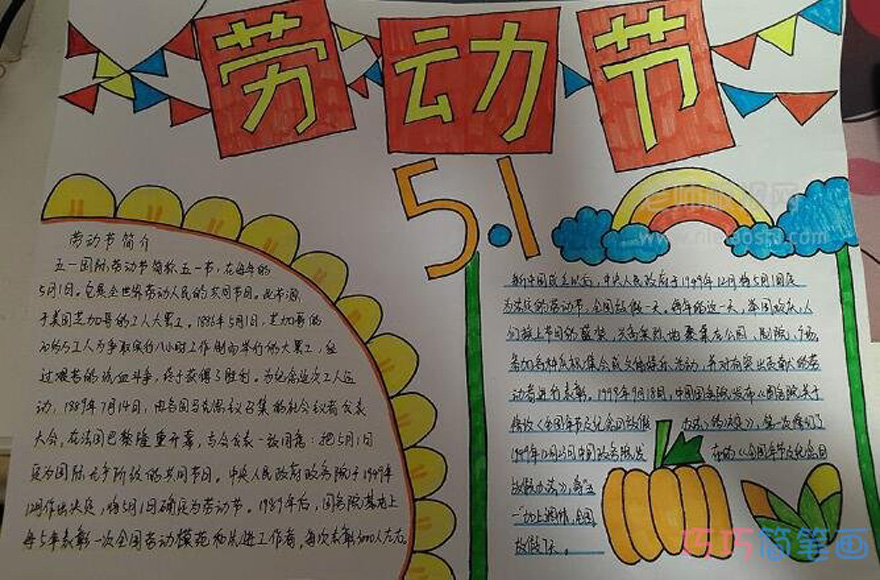 劳动节
5.1
劳动节简介
五一国际劳动节简称五一节，在每年的
5月1日。它是全世界劳动人民的共同节日。此节源
于美国芝加哥的工人大罢工。1886年5月1日，芝加哥的
工人为争取实行八小时工作制而举行的大罢工，经
过艰苦的流血斗争，终于获得了胜利。为纪念这次工人运
动，1889年7月14日，由各国马克思 召集的社会 者代表
大会，在法国巴黎隆重开幕，与会代表一致同意：把5月1日
定为国际无产阶级的共同节日。中央人民政府政务院于1949年
12月作出决定，将5月1日确定为劳动节。1989年后，国务院基本上
每5年表彰一次全国劳动模范和先进工作者，每次表彰3000人左右。
新中国成立以后，中央人民政府于1949年12月将5月1日定
为法定的劳动节，全国放假一天。每年的这一天，举国欢庆，人
们换上节日的盛装，兴高采烈地聚集在公园、剧院、广场，
参加各种庆祝集会或文体娱乐活动，并对有突出贡献的劳
动者进行表彰。
国务院发布《国务院关于
修改《全国年节及纪念日放假办法》的决定》，第一次修订了
1949年12月23日中国政务院发 布的《全国年节及纪念日
放假办法》，将五
一 全国
放假7天。
巧巧简笔画